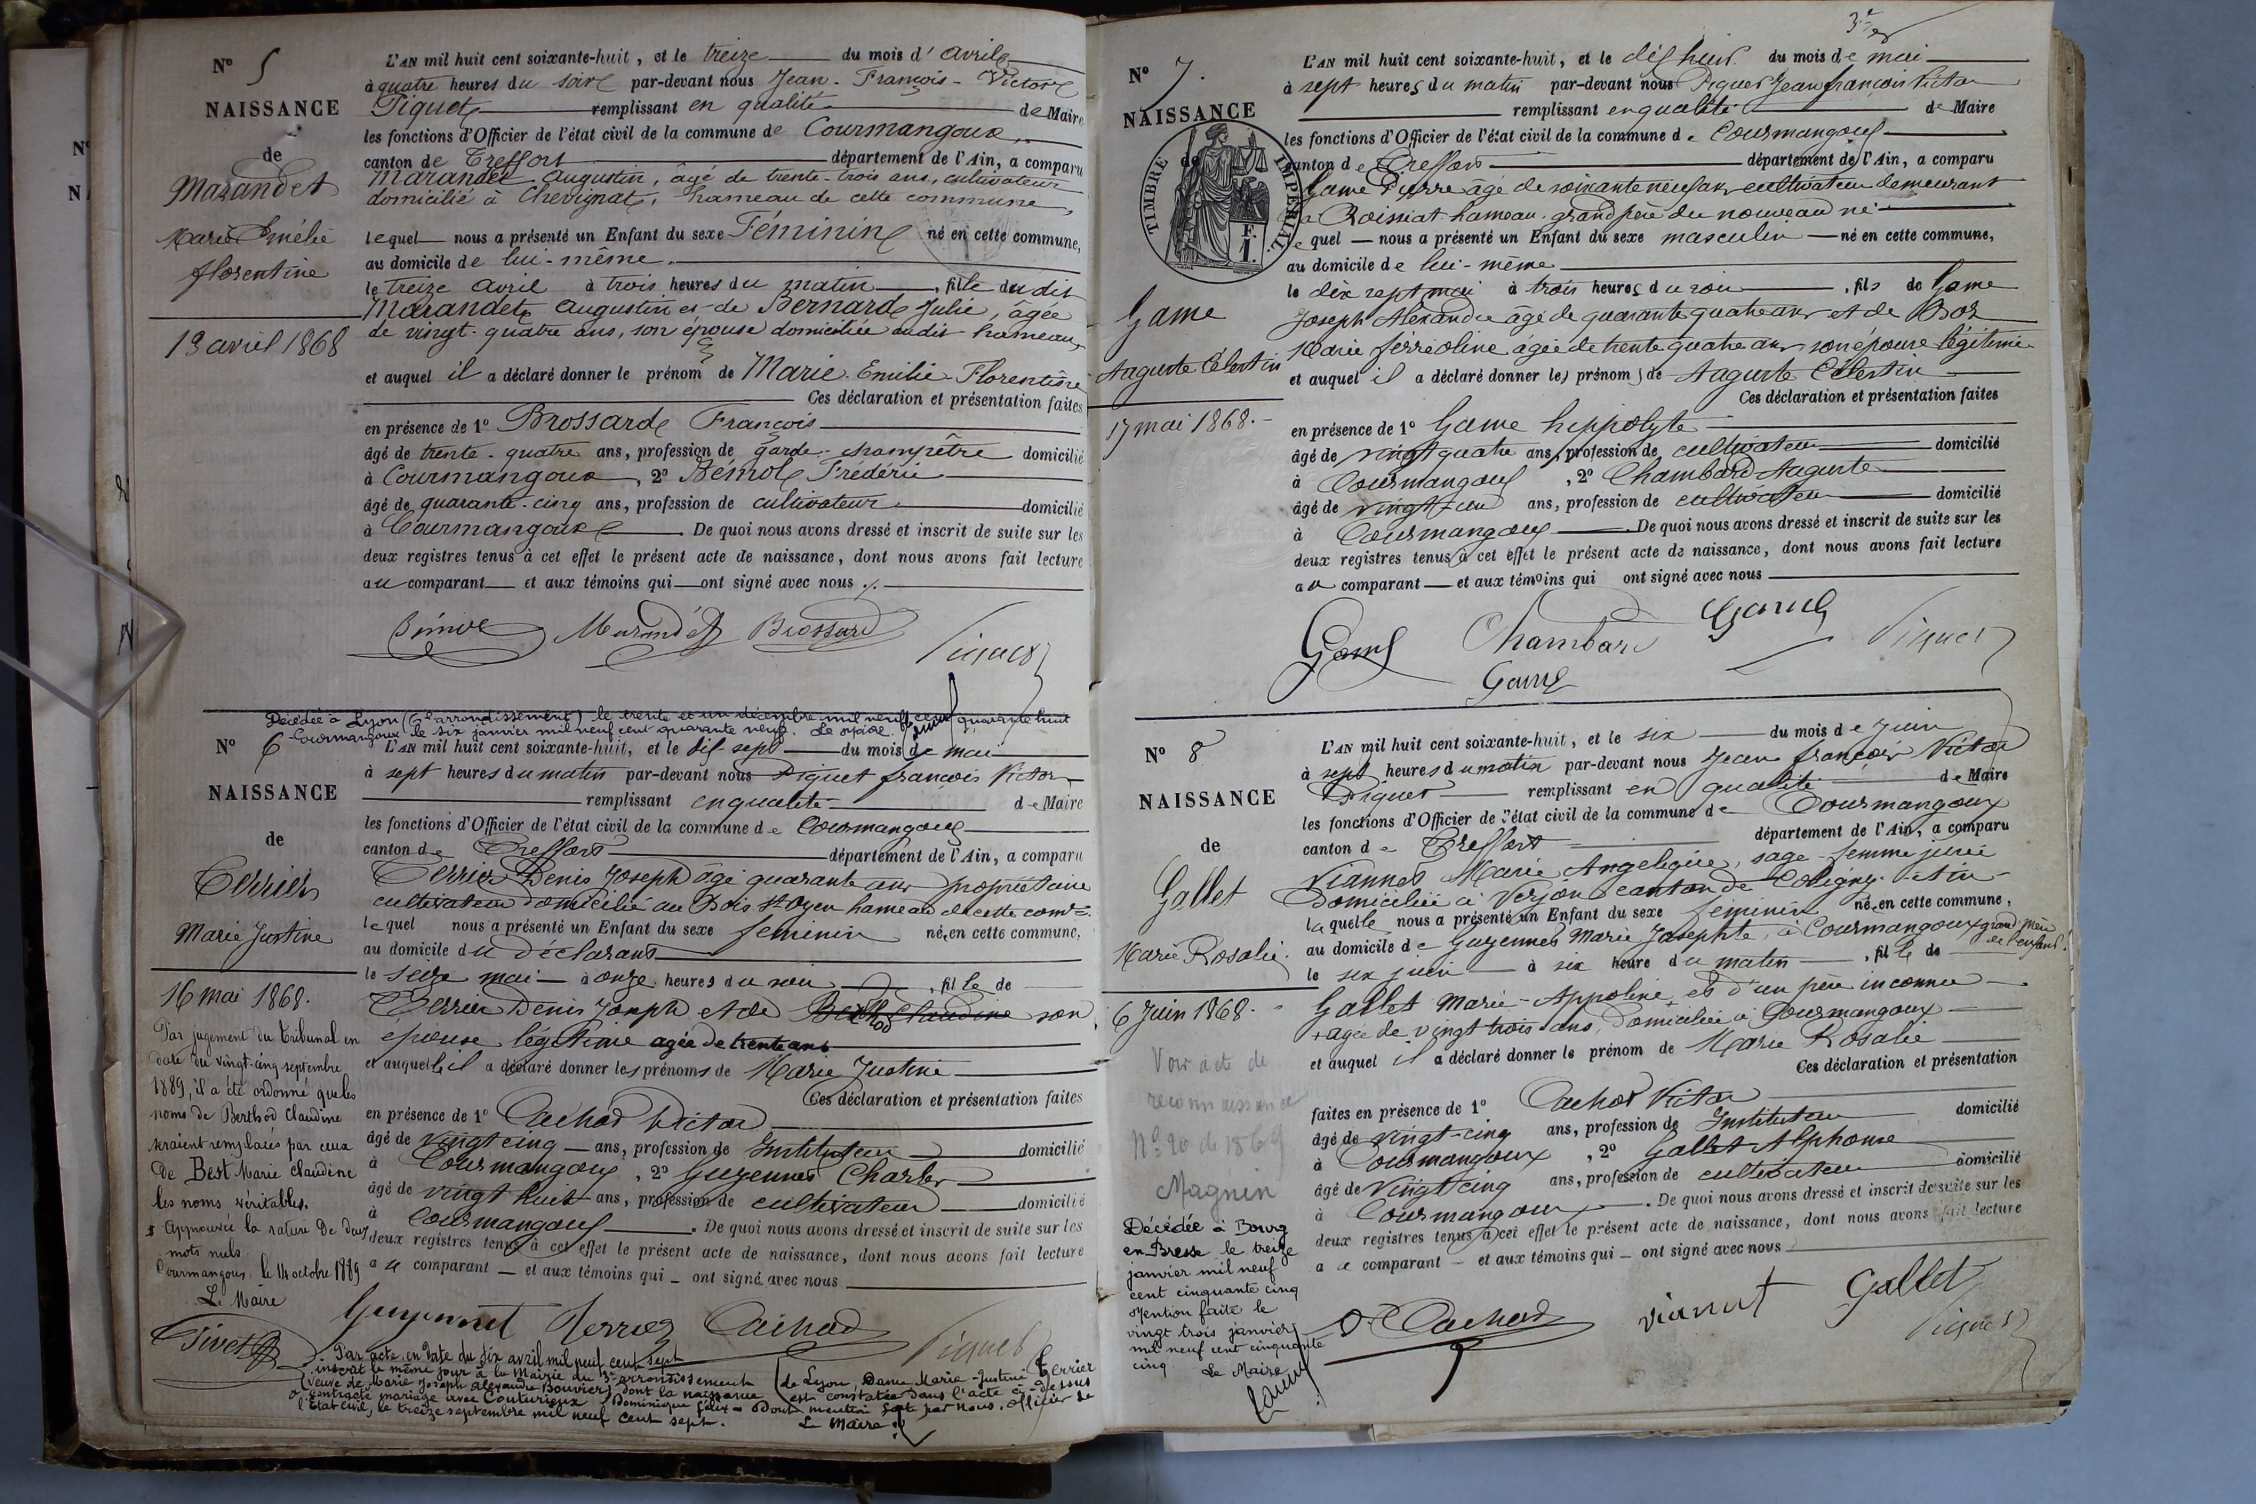 N° 5
NAISSANCE
de
Marandet
Marie Emélie
florentine
13 avril 1868
L'AN mil huit cent soixante-huit, et le treize du mois d'avril
à quatre heures du soir par-devant nous Jean-François-Victor
Piquet remplissant en qualité de Maire
les fonctions d'Officier de l'état civil de la commune de Courmangoux
canton de Treffort département de l'Ain, a comparu
Marandet Augustin, âgé de trente-trois ans, cultivateur
domicilié à Chevignat, hameau de cette commune,
lequel nous a présenté un Enfant du sexe Féminin né en cette commune,
au domicile de lui-même.
le treize avril à trois heures du matin, fille dudit
Marandet Augustin et de Bernard Julie, âgée
de vingt-quatre ans, son épouse domiciliée audit hameau,
et auquel il a déclaré donner le prénom de Marie Emilie Florentine
Ces déclaration et présentation faites
en présence de 1° Brossard François
âgé de trente-quatre ans, profession de garde-champêtre domicilié
à Courmangoux, 2° Bémol Frédéric
âgé de quarante-cinq ans, profession de cultivateur domicilié
à Courmangoux. De quoi nous avons dressé et inscrit de suite sur les
deux registres tenus à cet effet le présent acte de naissance, dont nous avons fait lecture
au comparant et aux témoins qui ont signé avec nous ./.
Marandet Brossard
Piquet
Décédée à Lyon (6e arrondissement) le trente et un décembre mil neuf cent quarante huit
Courmangoux le six janvier mil neuf cent quarante neuf.
N° 6
NAISSANCE
de
Terrier
Marie Justine
16 mai 1868.
Par jugement du tribunal en
date du vingt-cinq septembre
1889, il a été ordonné que les
noms de Berthod Claudine
seraient remplacés par ceux
de Best Marie Claudine
les noms véritables.
Approuvée la rature de deux
mots nuls
Courmangoux, le 14 octobre 1889
Le Maire
Tivet
L'AN mil huit cent soixante-huit, et le dix sept du mois de mai
à sept heures du matin par-devant nous Piquet françois Victor
remplissant en qualité de Maire
les fonctions d'Officier de l'état civil de la commune de Courmangoux
canton de Treffort département de l'Ain, a comparu
Terrier Denis Joseph âgé quarante ans propriétaire
cultivateur domicilié au Bois St Oyen hameau de cette comne.
lequel nous a présenté un Enfant du sexe féminin née en cette commune,
au domicile du déclarant
le seize mai à onze heures du soir, fille de
Terrier Denis Joseph et de Berthod Claudine son
épouse légitime agée de trente ans
et auquelle il a déclaré donner les prénoms de Marie Justine
Ces déclaration et présentation faites
en présence de 1° Cachod Victor
âgé de vingt cinq ans, profession de Instituteur domicilié
à Courmangoux, 2° Guyennet Charles
âgé de vingt huit ans, profession de cultivateur domicilié
à Courmangoux. De quoi nous avons dressé et inscrit de suite sur les
deux registres tenus à cet effet le présent acte de naissance, dont nous avons fait lecture
au comparant et aux témoins qui ont signé avec nous
Guyennet Terrier Cachod Piquet
Par acte en date du dix avril mil neuf cent sept
inscrit le même jour à la Mairie du 3e arrondissement de Lyon, Dame Marie-Justine Terrier
(veuve de Marie Joseph Alexandre Bouvier) dont la naissance est constatée dans l'acte ci-dessus
a contracté mariage avec Couturieux Dominique Félix. Dont mention faite par nous, officier de
l'Etat civil, le treize septembre mil neuf cent sept. Le Maire
3e
N° 7.
NAISSANCE
de
TIMBRE IMPÉRIAL
1 F.
Game
Auguste Célestin
17 mai 1868.
L'AN mil huit cent soixante-huit, et le dix huit du mois de mai
à sept heures du matin par-devant nous Piquet Jean françois Victor
remplissant en qualité de Maire
les fonctions d'Officier de l'état civil de la commune de Courmangoux
canton de Treffort département de l'Ain, a comparu
Game Pierre âgé de soixante neuf ans cultivateur demeurant
à Roissiat hameau. grand père du nouveau né
lequel nous a présenté un Enfant du sexe masculin né en cette commune,
au domicile de lui-même
le dix sept mai à trois heures du soir, fils de Game
Joseph Alexandre âgé de quarante quatre ans et de Boz
Marie ferréoline âgée de trente quatre ans son épouse légitime
et auquel il a déclaré donner les prénoms de Auguste Célestin
Ces déclaration et présentation faites
en présence de 1° Game hippolyte
âgé de vingt quatre ans, profession de cultivateur domicilié
à Courmangoux, 2° Chambard Auguste
âgé de vingt un ans, profession de cultivateur domicilié
à Courmangoux. De quoi nous avons dressé et inscrit de suite sur les
deux registres tenus à cet effet le présent acte de naissance, dont nous avons fait lecture
au comparant et aux témoins qui ont signé avec nous
Game Chambard Game Piquet
Game
N° 8
NAISSANCE
de
Gallet
Marie Rosalie.
6 Juin 1868.
Voir acte de
reconnaissance
N° 20 de 1869
Magnin
Décédée à Bourg
en Bresse le treize
janvier mil neuf
cent cinquante cinq
Mention faite le
vingt trois janvier
mil neuf cent cinquante
cinq
Le Maire
L'AN mil huit cent soixante-huit, et le six du mois de Juin
à sept heures du matin par-devant nous Jean françois Victor
Piquet remplissant en qualité de Maire
les fonctions d'Officier de l'état civil de la commune de Courmangoux
canton de Treffort département de l'Ain, a comparu
Viannet Marie Angelique, sage-femme jurée
Domiciliée à Verjon canton de Coligny. Ain
laquelle nous a présenté un Enfant du sexe féminin née en cette commune,
au domicile de Guyennet Marie Josephte, à Courmangoux grand'mère de l'enfant.
le six juin à six heure du matin, fille de
Gallet Marie-Appoline, et d'un père inconnu
agée de vingt trois ans, Domiciliée à Courmangoux
et auquel il a déclaré donner le prénom de Marie Rosalie
Ces déclaration et présentation
faites en présence de 1° Cachod Victor
âgé de vingt-cinq ans, profession de Instituteur domicilié
à Courmangoux, 2° Gallet Alphonse
âgé de vingt cinq ans, profession de cultivateur domicilié
à Courmangoux. De quoi nous avons dressé et inscrit de suite sur les
deux registres tenus à cet effet le présent acte de naissance, dont nous avons fait lecture
a comparant et aux témoins qui ont signé avec nous
Cachod Viannet Gallet
Piquet